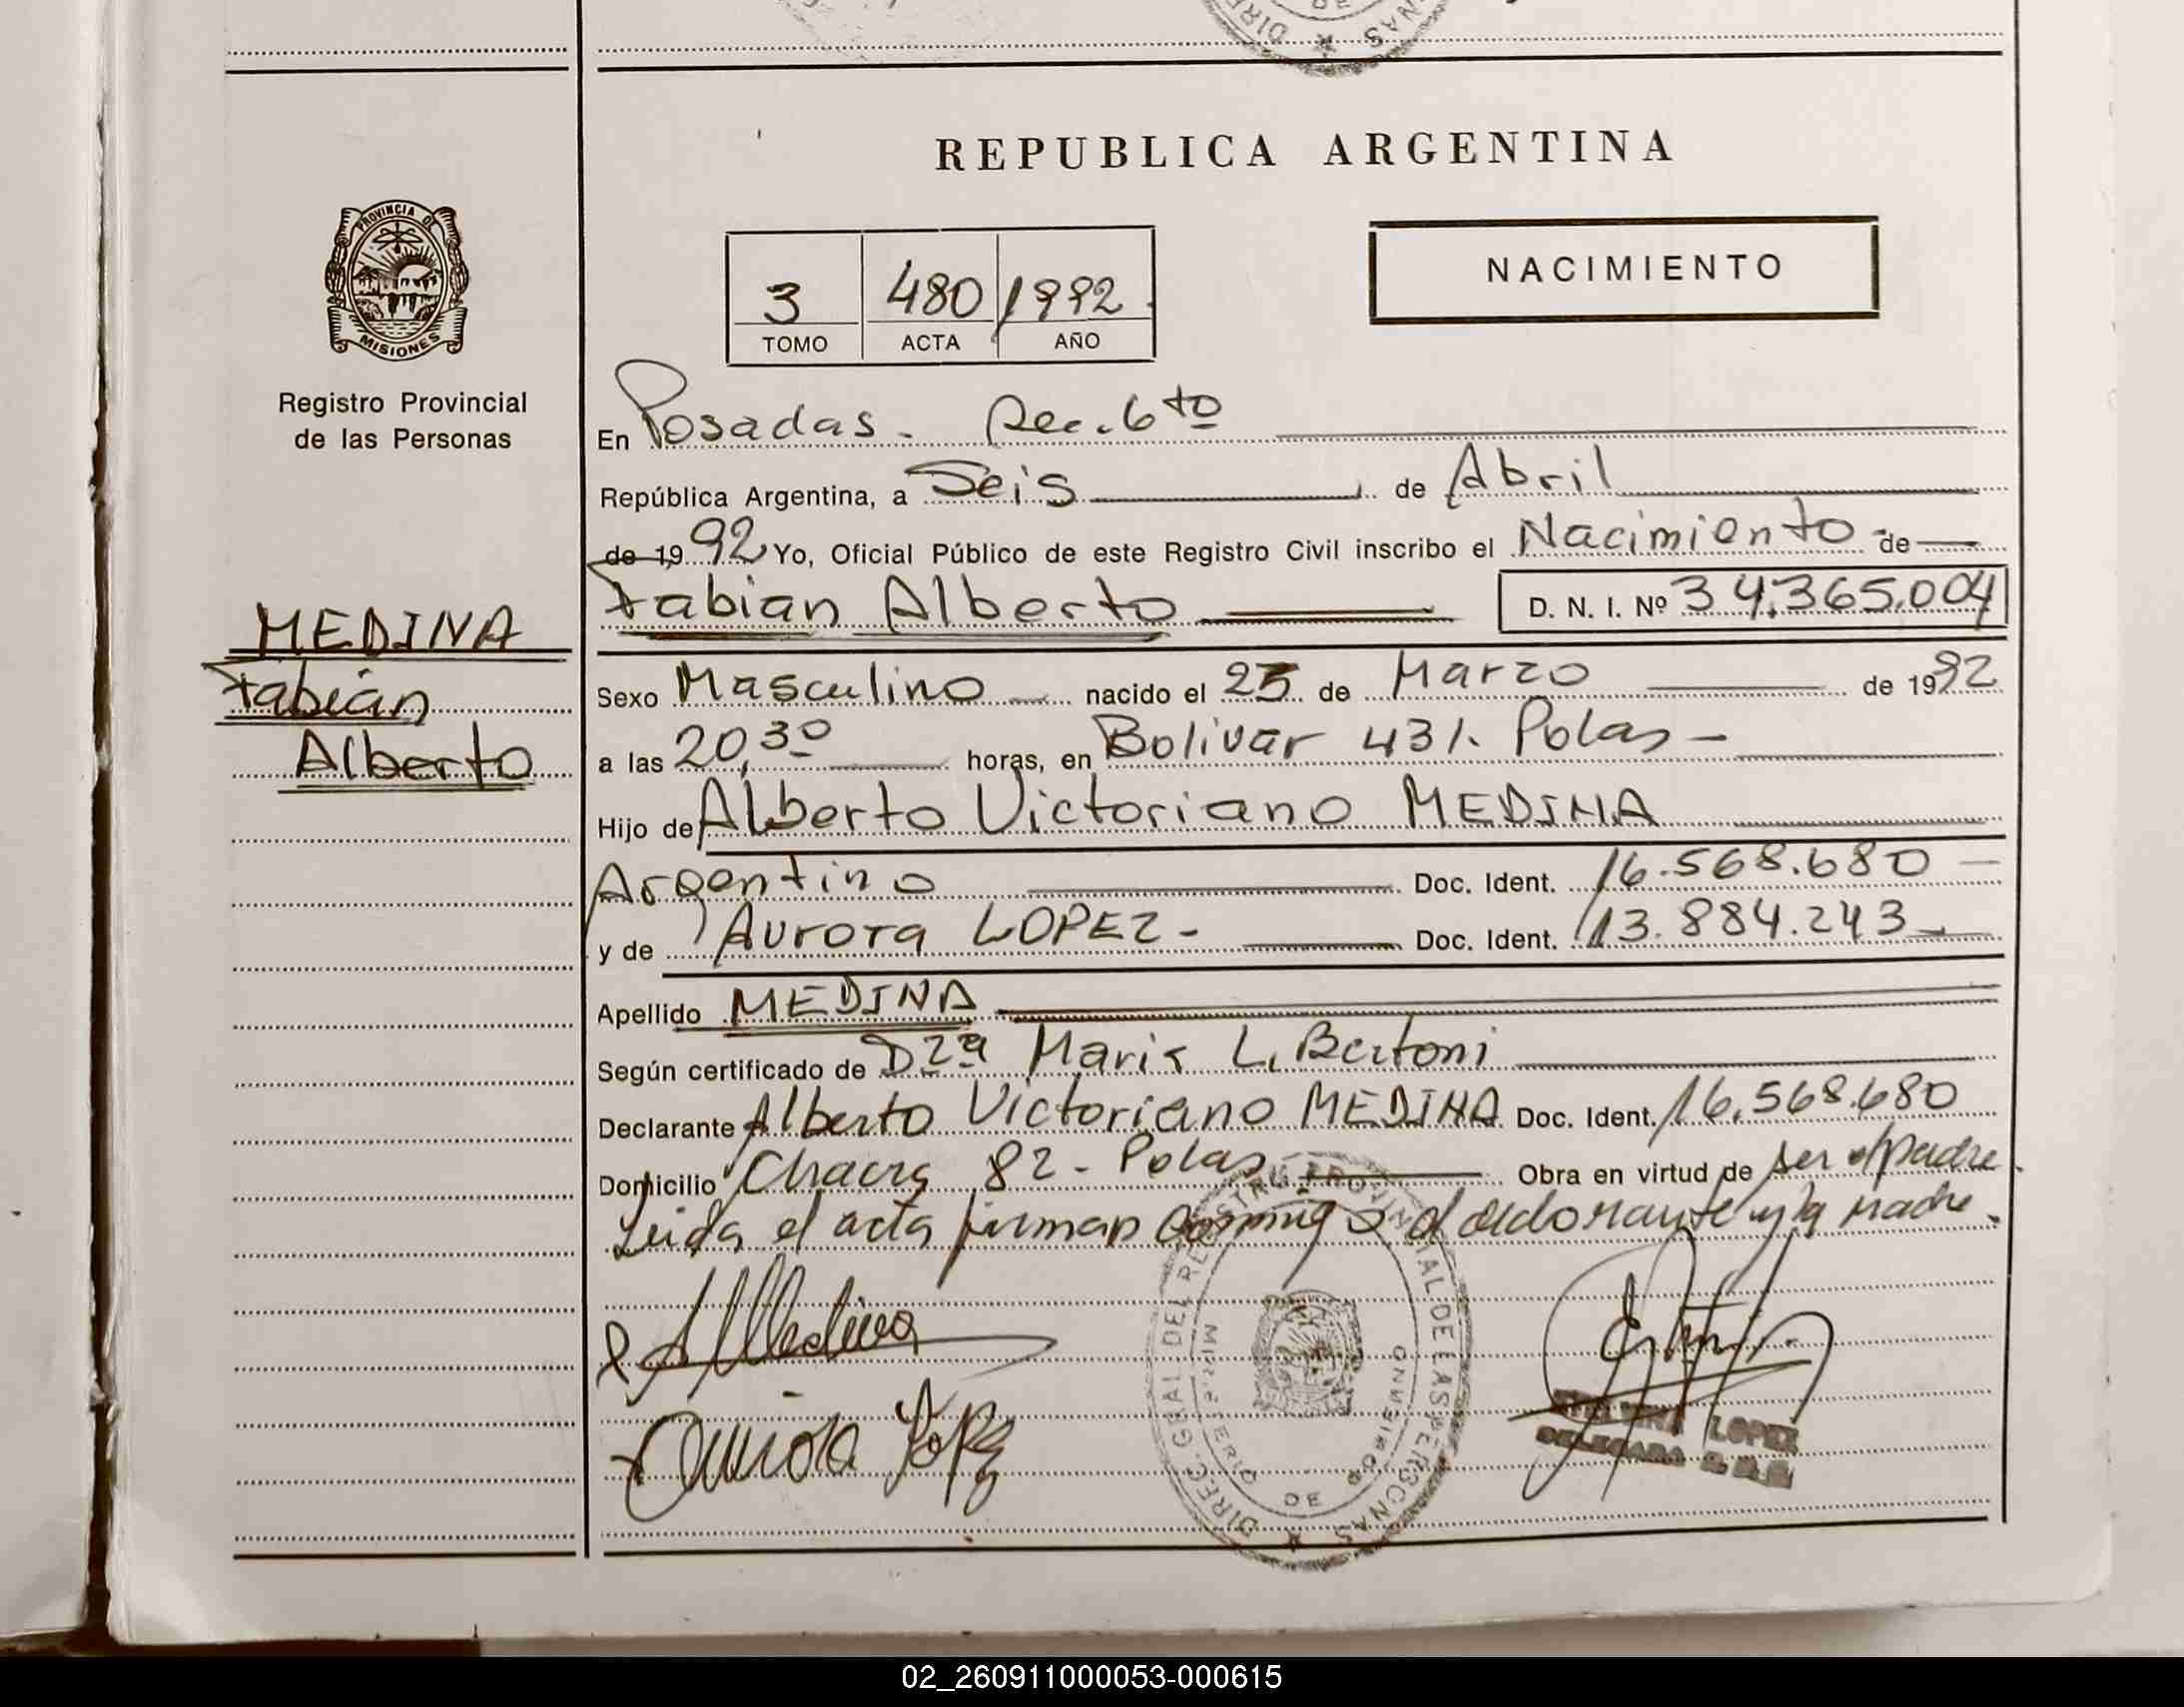 REPUBLICA ARGENTINA
PROVINCIA DE
MISIONES
Registro Provincial
de las Personas
3 480 1992
TOMO ACTA AÑO
NACIMIENTO
En Posadas - Sec. 6to
República Argentina, a Seis de Abril
de 1992 Yo, Oficial Público de este Registro Civil inscribo el Nacimiento de
Fabian Alberto D. N. I. Nº 34.365.004
MEDINA
Fabián
Alberto
Sexo Masculino nacido el 25 de Marzo de 1992
a las 20,30 horas, en Bolivar 431. Pdas -
Hijo de Alberto Victoriano MEDINA
Argentino Doc. Ident. 16.568.680
y de Aurora LOPEZ - Doc. Ident. 13.884.243
Apellido MEDINA
Según certificado de Dra Maris L. Bertoni
Declarante Alberto Victoriano MEDINA Doc. Ident. 16.568.680
Domicilio Chacra 82 - Pdas Obra en virtud de ser el padre.
Leida el acta firman conmigo el declarante y la madre.
A Medina
Aurora López
DIREC. GRAL DEL REGISTRO PROVINCIAL DE LAS PERSONAS
MINISTERIO DE GOBIERNO
LOPEZ
DELEGADA
02_260911000053-000615